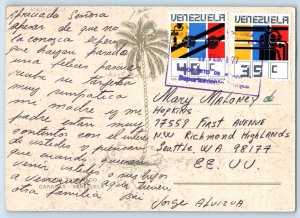 Apreciada Señora
Apesar de que no
la conozca espero
que hayan pasado
una felices pascuas
recibí su tarjeta
muy simpatica
mi madre y mi
padre estan muy
contentos con el interes
de ustedes y piensan
que cuando quieran
venir ustedes o sus hijos
aqui tienen
otra familia
Jorge
VENEZUELA
VENEZUELA
Mary Maloney de
HOPKINS
17758 FIRST AVENUE
N.W RICHMOND HIGHLANDS
SEATTLE, WA 98177
EE. UU.
CARACAS - VENEZUELA